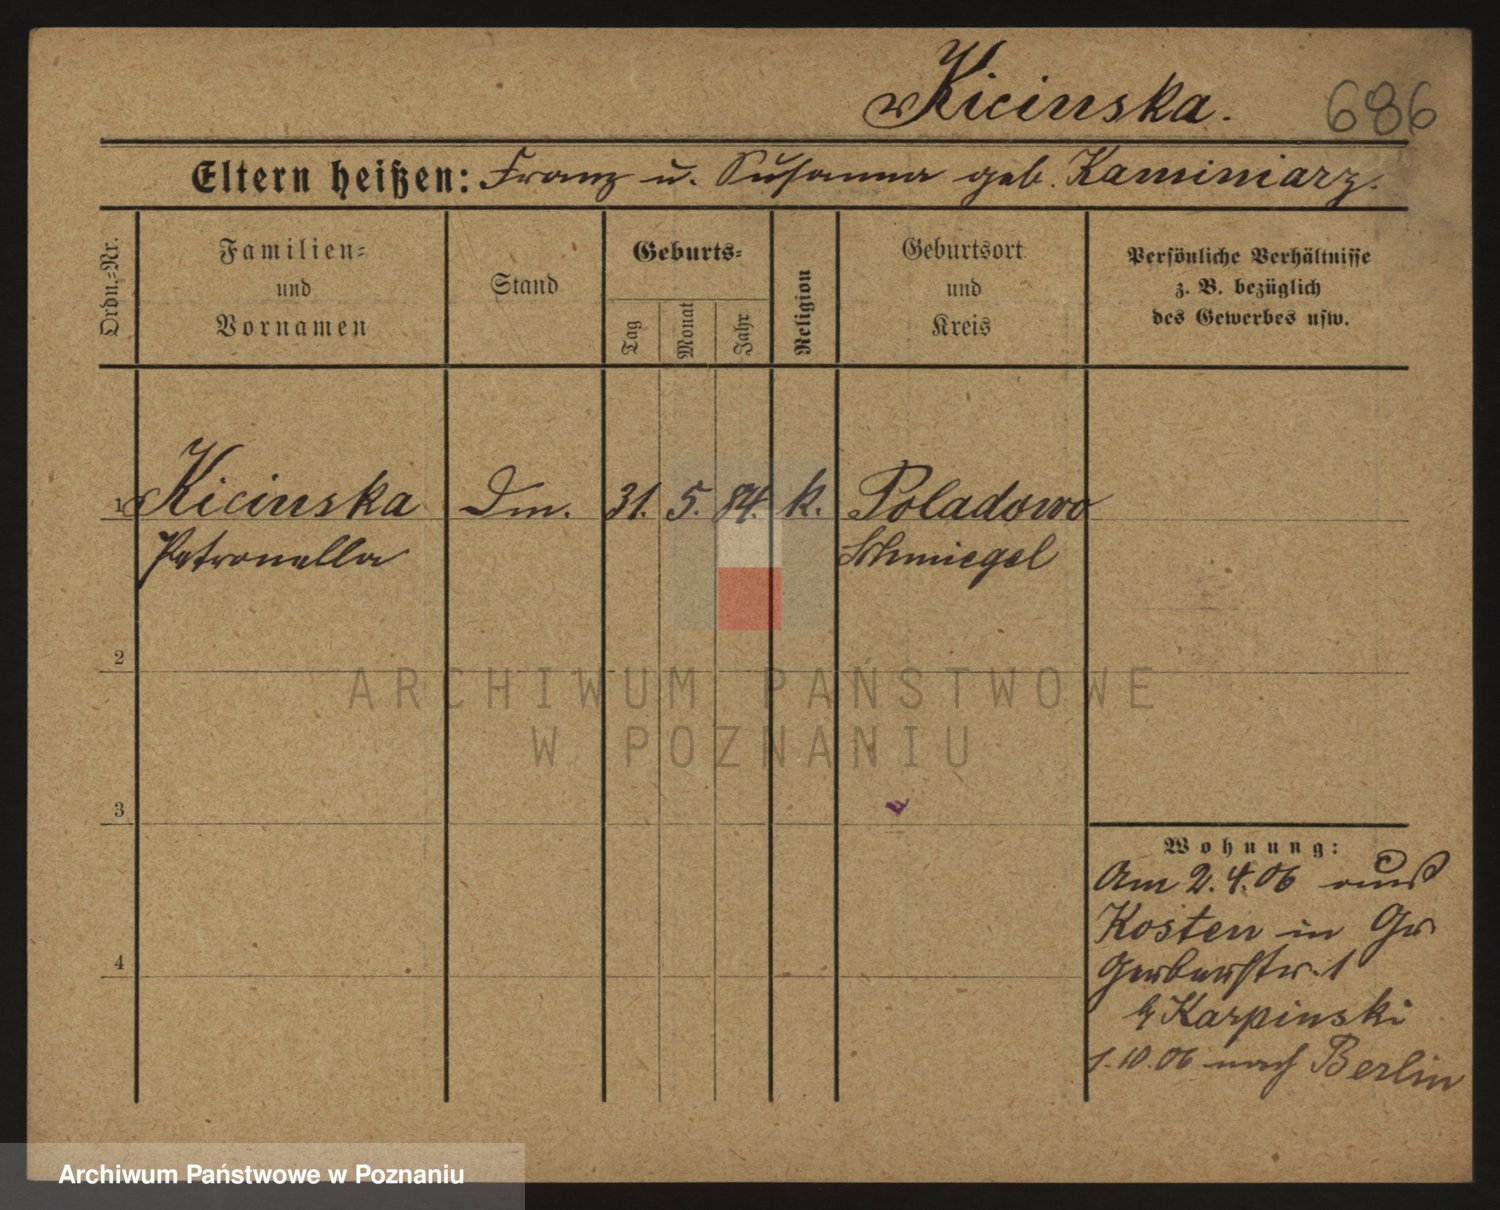 Kicinska. 686
Eltern heißen: Franz u. Susanna geb. Kaminiarz.
Ordn.=Nr.
Familien=
und
Vornamen
Stand
Geburts=
Tag
Monat
Jahr
Religion
Geburtsort
und
Kreis
Persönliche Verhältnisse
z. B. bezüglich
des Gewerbes usw.
1 Kicinska Dm. 31. 5. 84. k. Poladowo
Petronella Schmiegel
2
ARCHIWUM PAŃSTWOWE
W POZNANIU
3
Wohnung:
Am 2.4.06 aus
Kosten in Gr
Gerberstr. 1
Karpinski
1.10.06 nach Berlin
4
Archiwum Państwowe w Poznaniu